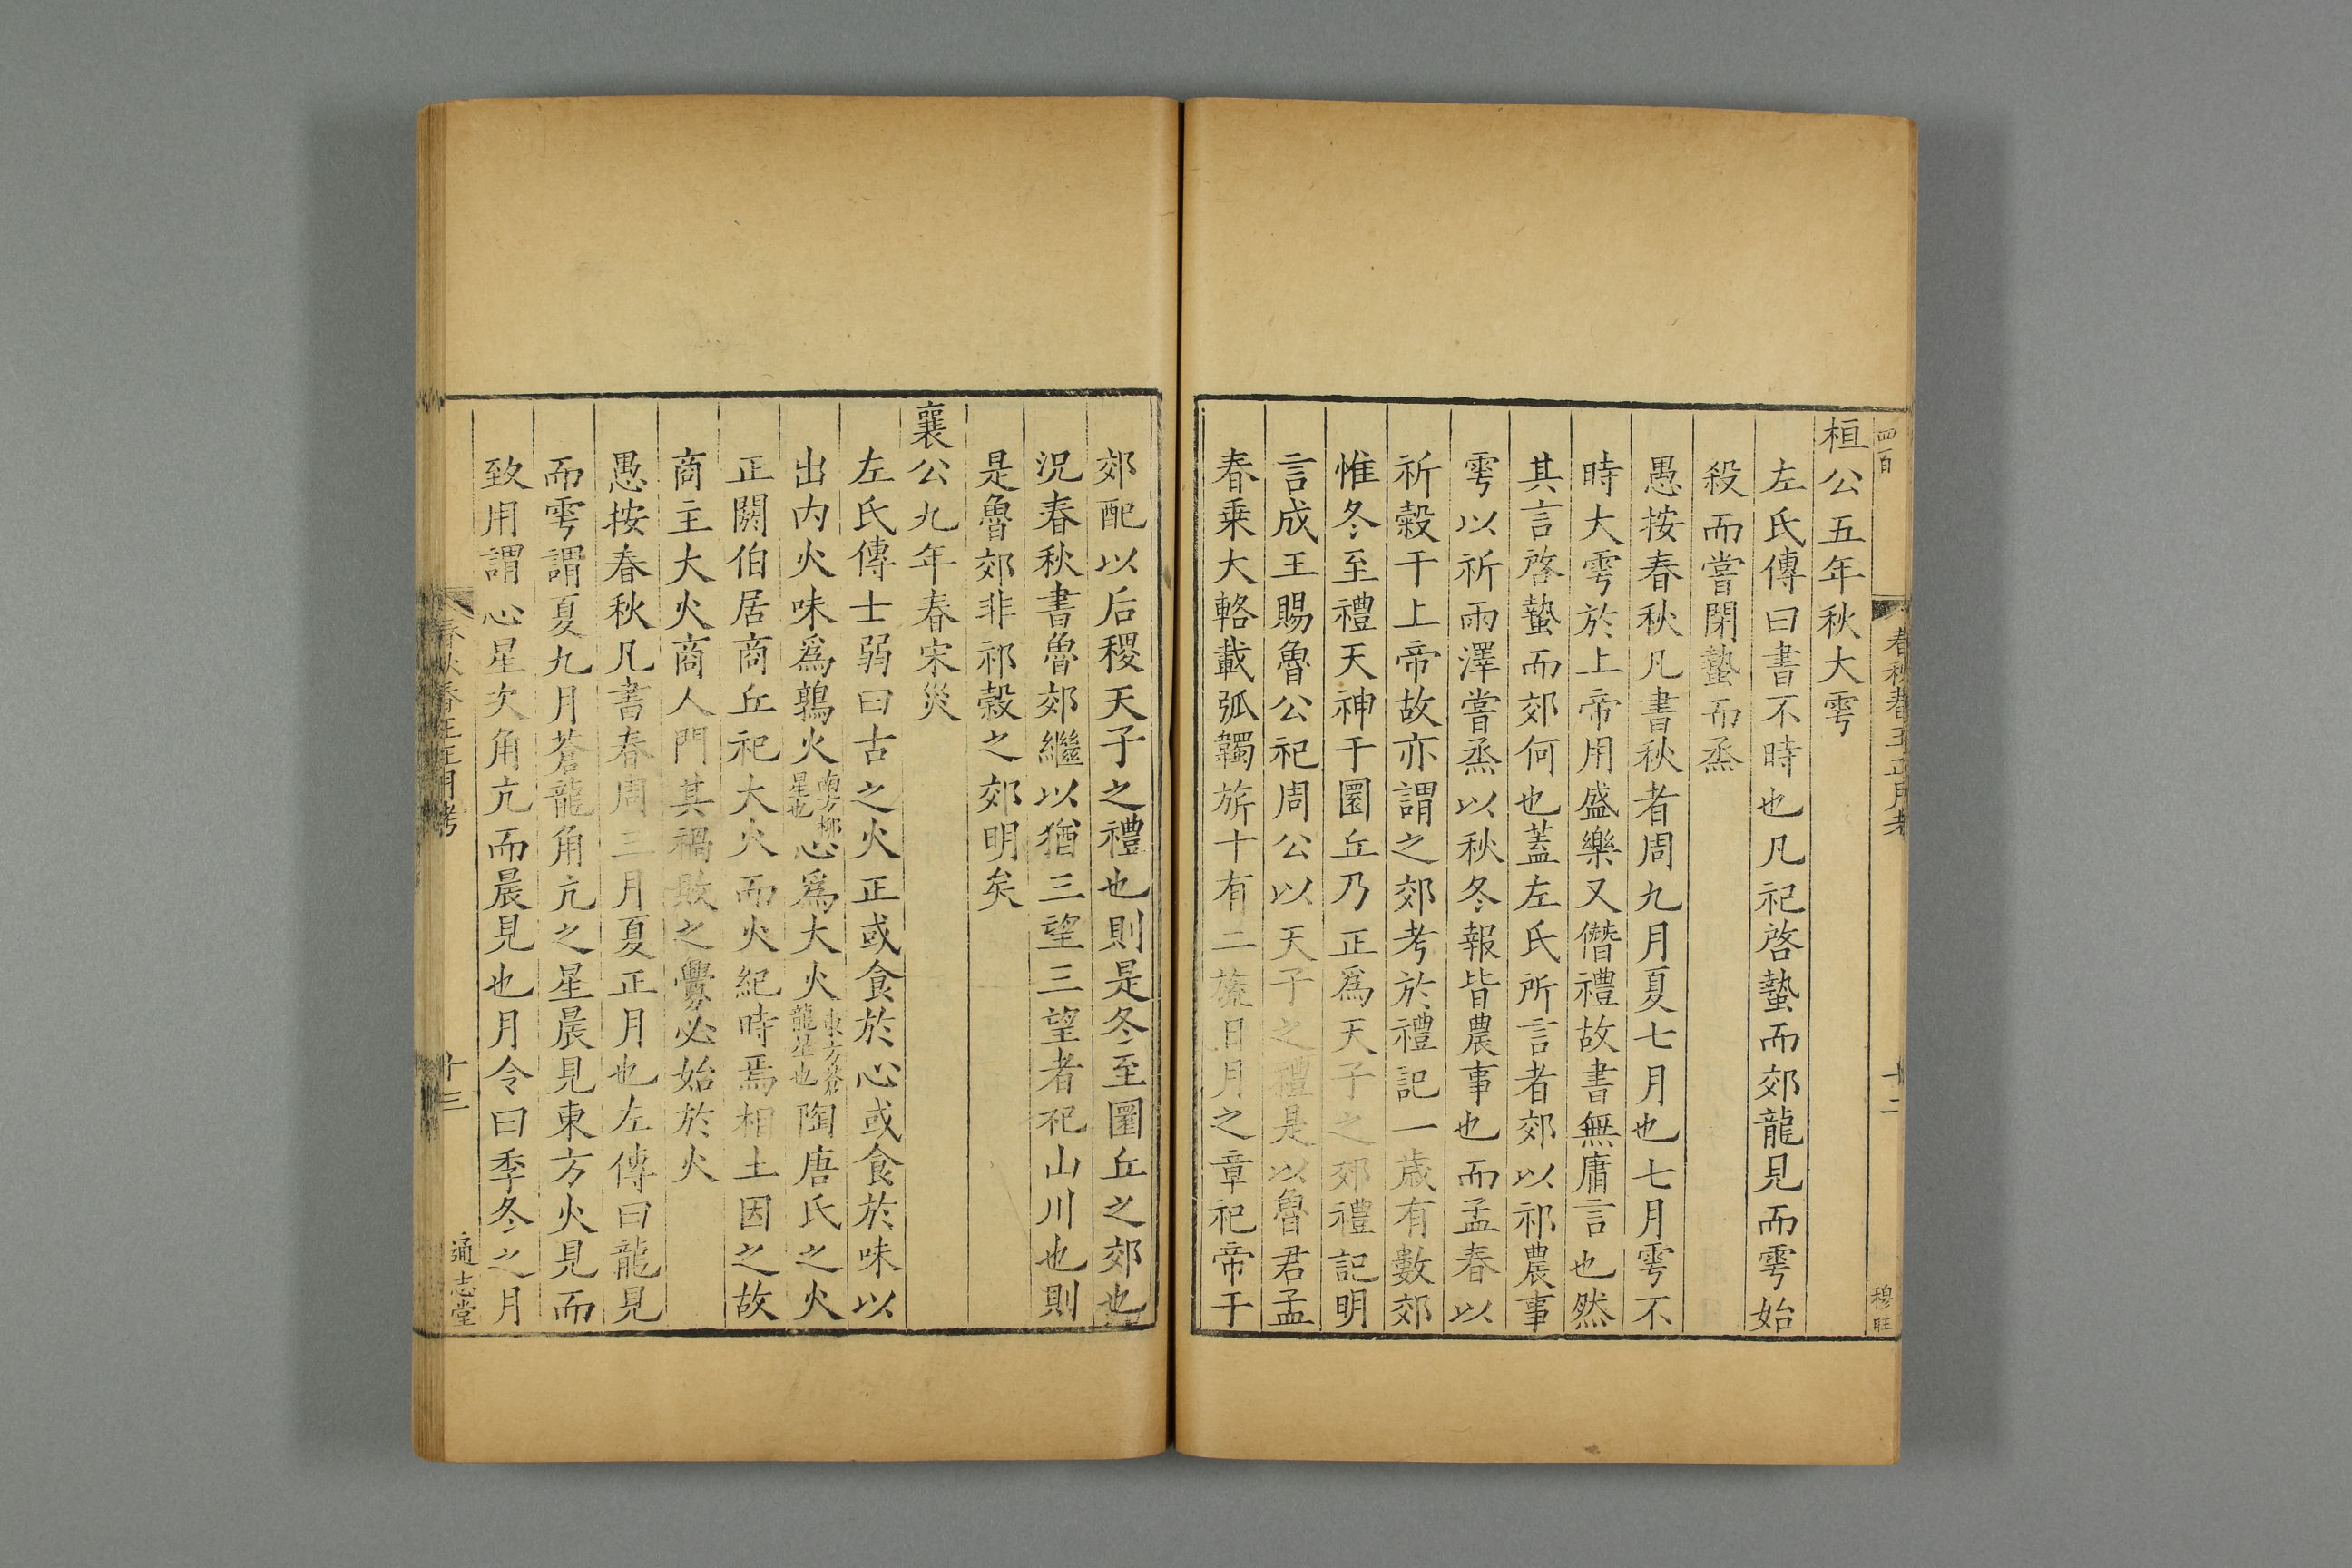 四百
春秋春王正月考
十二
穆旺
桓公五年秋大雩
左氏傳曰書不時也凡祀啓蟄而郊龍見而雩始
殺而嘗閉蟄而烝
愚按春秋凡書秋者周九月夏七月也七月雩不
時大雩於上帝用盛樂又僭禮故書無庸言也然
其言啓蟄而郊何也蓋左氏所言者郊以祈農事
雩以祈雨澤嘗烝以秋冬報皆農事也而孟春以
祈穀于上帝故亦謂之郊考於禮記一歲有數郊
惟冬至禮天神于圜丘乃正爲天子之郊禮記明
言成王賜魯公祀周公以天子之禮是以魯君孟
春乗大輅載弧韣旂十有二旒日月之章祀帝于
郊配以后稷天子之禮也則是冬至圜丘之郊也
況春秋書魯郊繼以猶三望三望者祀山川也則
是魯郊非祁穀之郊明矣
襄公九年春宋災
左氏傳士弱曰古之火正或食於心或食於味以
出内火味爲鶉火南方柳星也心爲大火東方蒼龍星也陶唐氏之火
正閼伯居商丘祀大火而火紀時焉相土因之故
商主大火商人門其禍敗之釁必始於火
愚按春秋凡書春周三月夏正月也左傳曰龍見
而雩謂夏九月蒼龍角亢之星晨見東方火見而
致用謂心星次角亢而晨見也月令曰季冬之月
春秋春王正月考
十三
通志堂